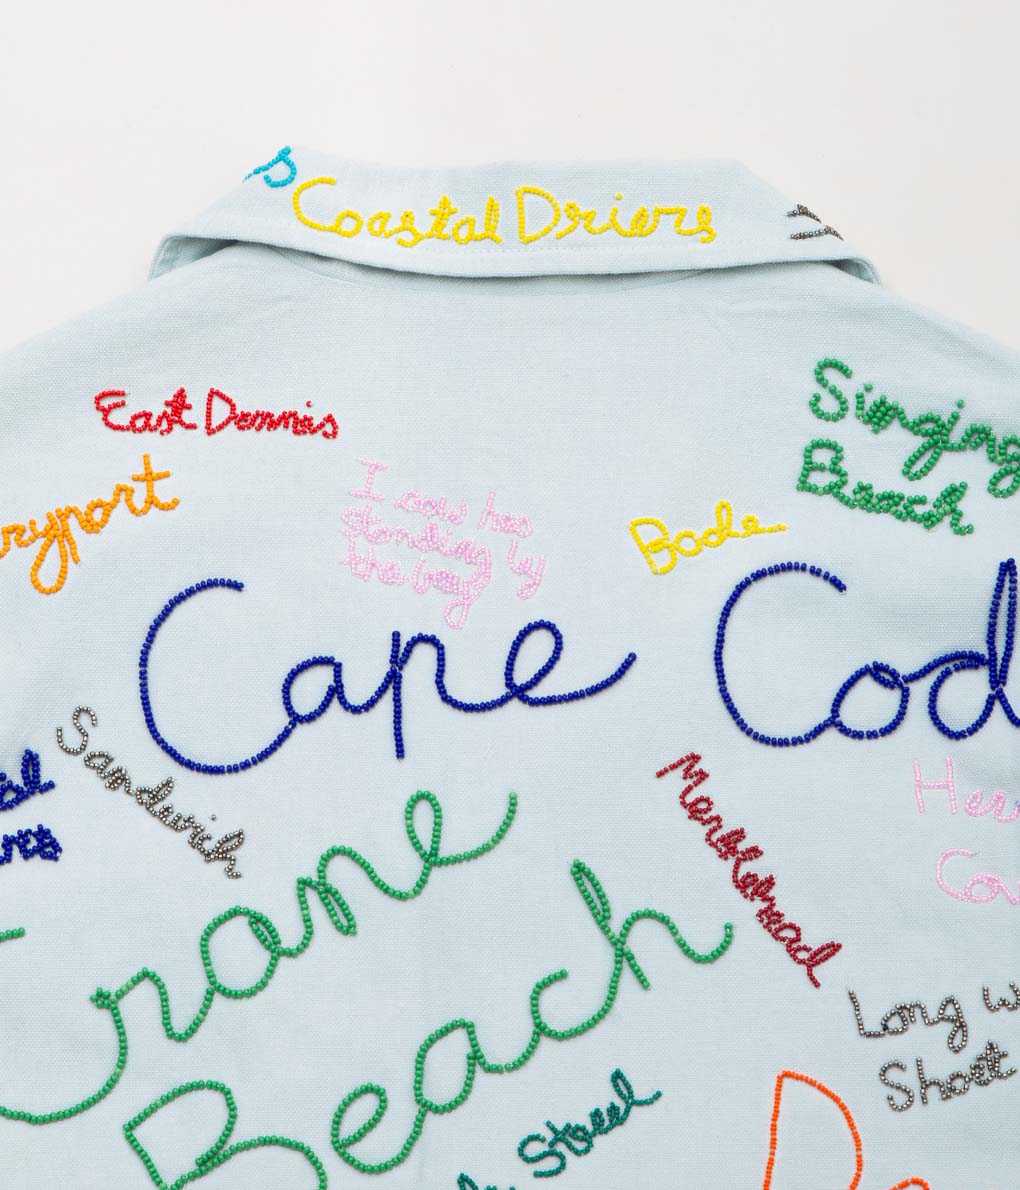 Coastal Driers
East Dennis
Singing
Beach
ryport
I cow has
standing by
the bay
Bode
Cape Cod
Sandwich
Crane
Beach
Long w
Short
Steel